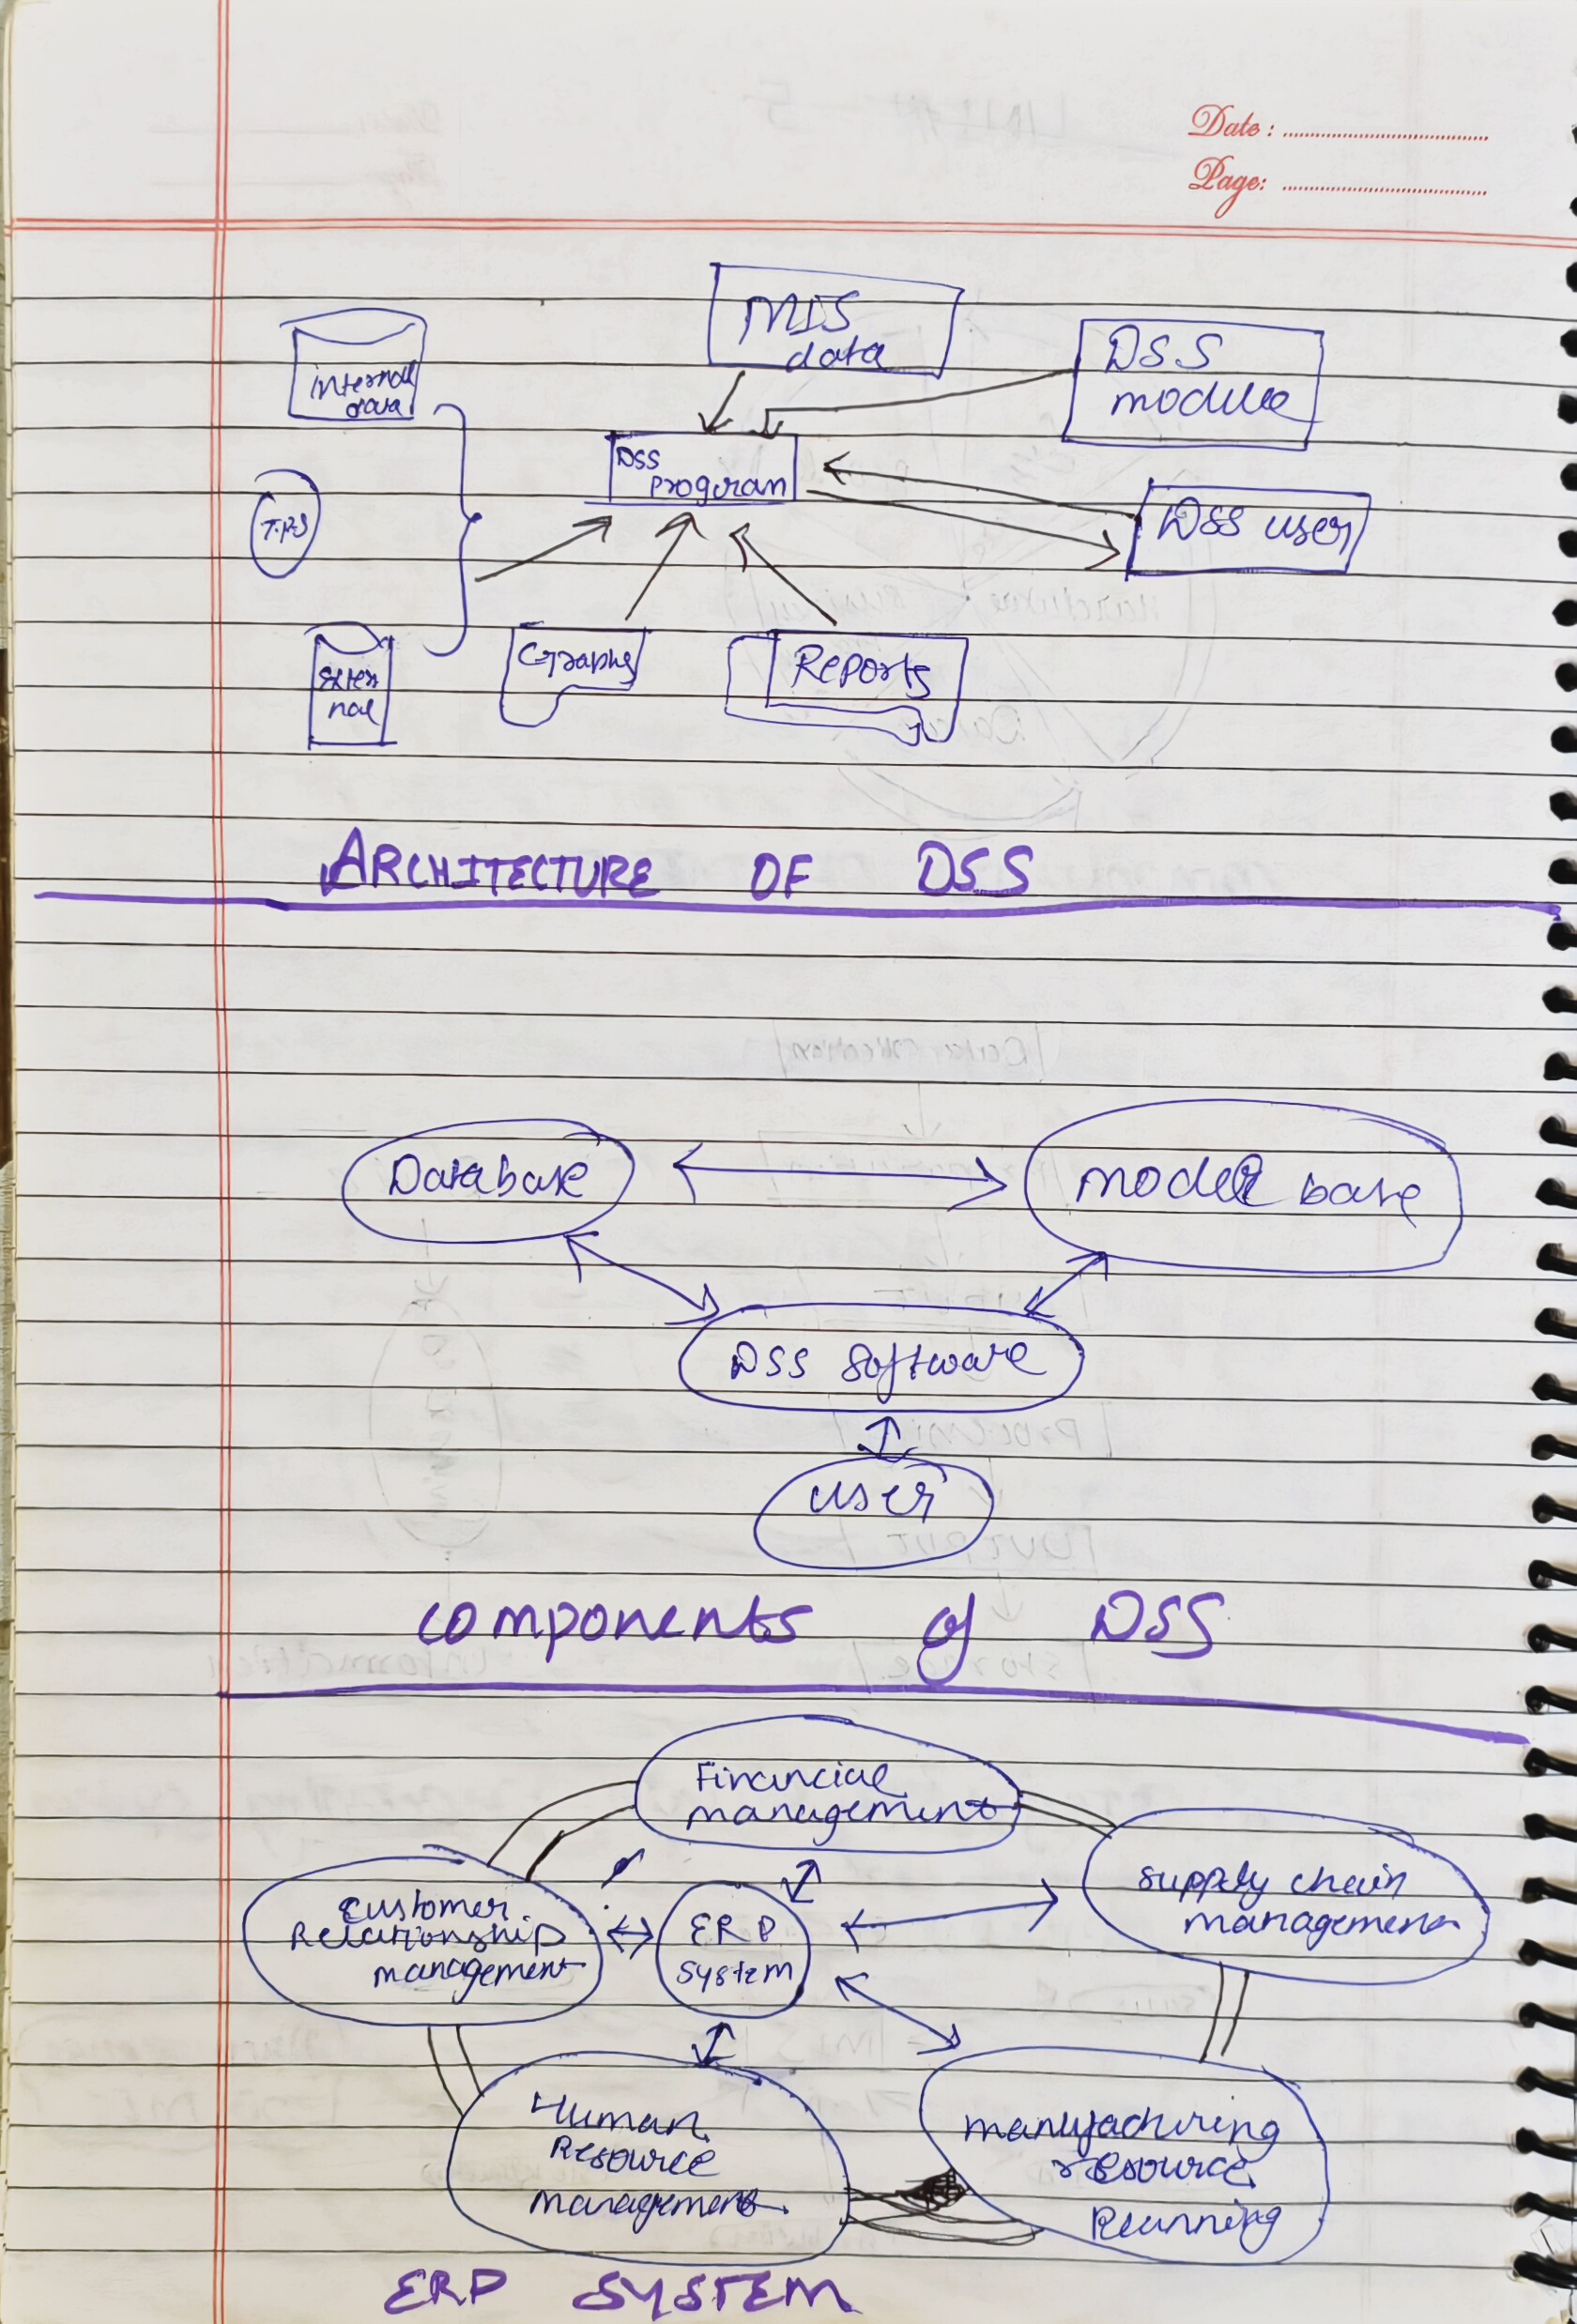 Date:
Page:
MIS
data
DSS
module
internal
data
DSS
program
T.P.S
DSS user
Exter
nal
Graphs
Reports
ARCHITECTURE OF DSS
Database
model base
DSS software
user
components of DSS
Financial
management
supply chain
management
customer
Relationship
management
ERP
system
Human
Resource
management
manufacturing
resource
planning
ERP SYSTEM